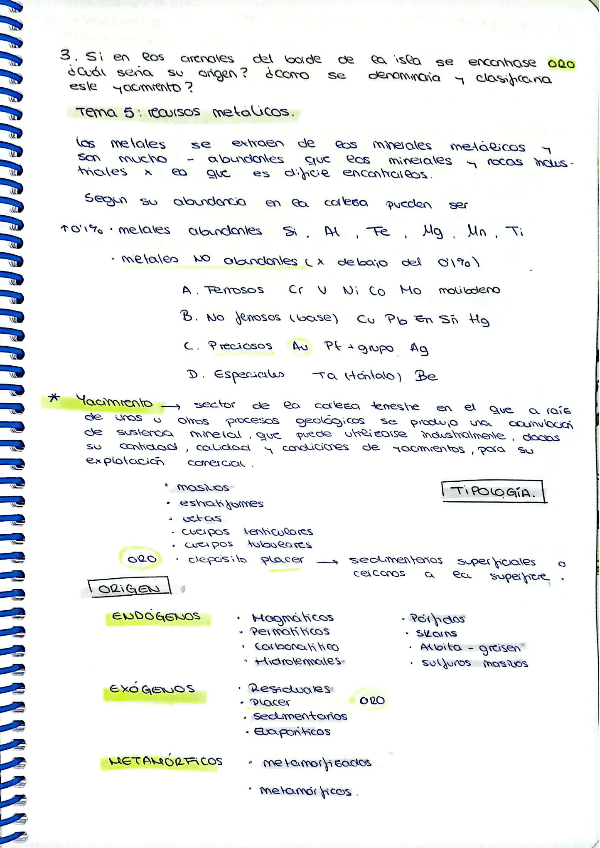 3. Si en los arenales del borde de la isla se encontrase ORO
¿Cuál sería su origen? ¿Como se denominaria y clasificaria
este yacimiento?
Tema 5: recursos metálicos.
Los metales se extraen de los minerales metálicos y
son mucho - abundantes que los minerales y rocas indus-
triales x lo que es dificil encontrarlos.
Segun su abundancia en la corteza pueden ser
↑0'1% · metales abundantes Si, Al, Fe, Mg, Mn, Ti
· metales NO abundantes (x debajo del 0'1%)
A. Ferrosos Cr V Ni Co Mo molibdeno
B. No ferrosos (base) Cu Pb Zn Sn Hg
C. Preciosos Au Pt + grupo Ag
D. Especiales Ta (tántalo) Be
* Yacimiento → sector de la corteza terrestre en el que a raíz
de unos u otros procesos geológicos se produjo una acumulación
de sustancia mineral, que puede utilizarse industrialmente, dadas
su cantidad, calidad y condiciones de yacimientos, para su
explotación comercial.
· masivos
TIPOLOGÍA.
· estratiformes
· vetas
· cuerpos lenticulares
· cuerpos tubulares
ORO · deposito placer → sedimentarios superficiales o
cercanos a la superficie.
ORIGEN
ENDÓGENOS · Magmáticos · Pórfidos
· Permatíticos · Skarns
· Carbonatítico · Albita - greisen
· Hidrotermales · sulfuros masivos
EXÓGENOS · Residuales
· Placer ORO
· Sedimentarios
· Evaporíticos
METAMÓRFICOS · metamorfizados
· metamórficos.